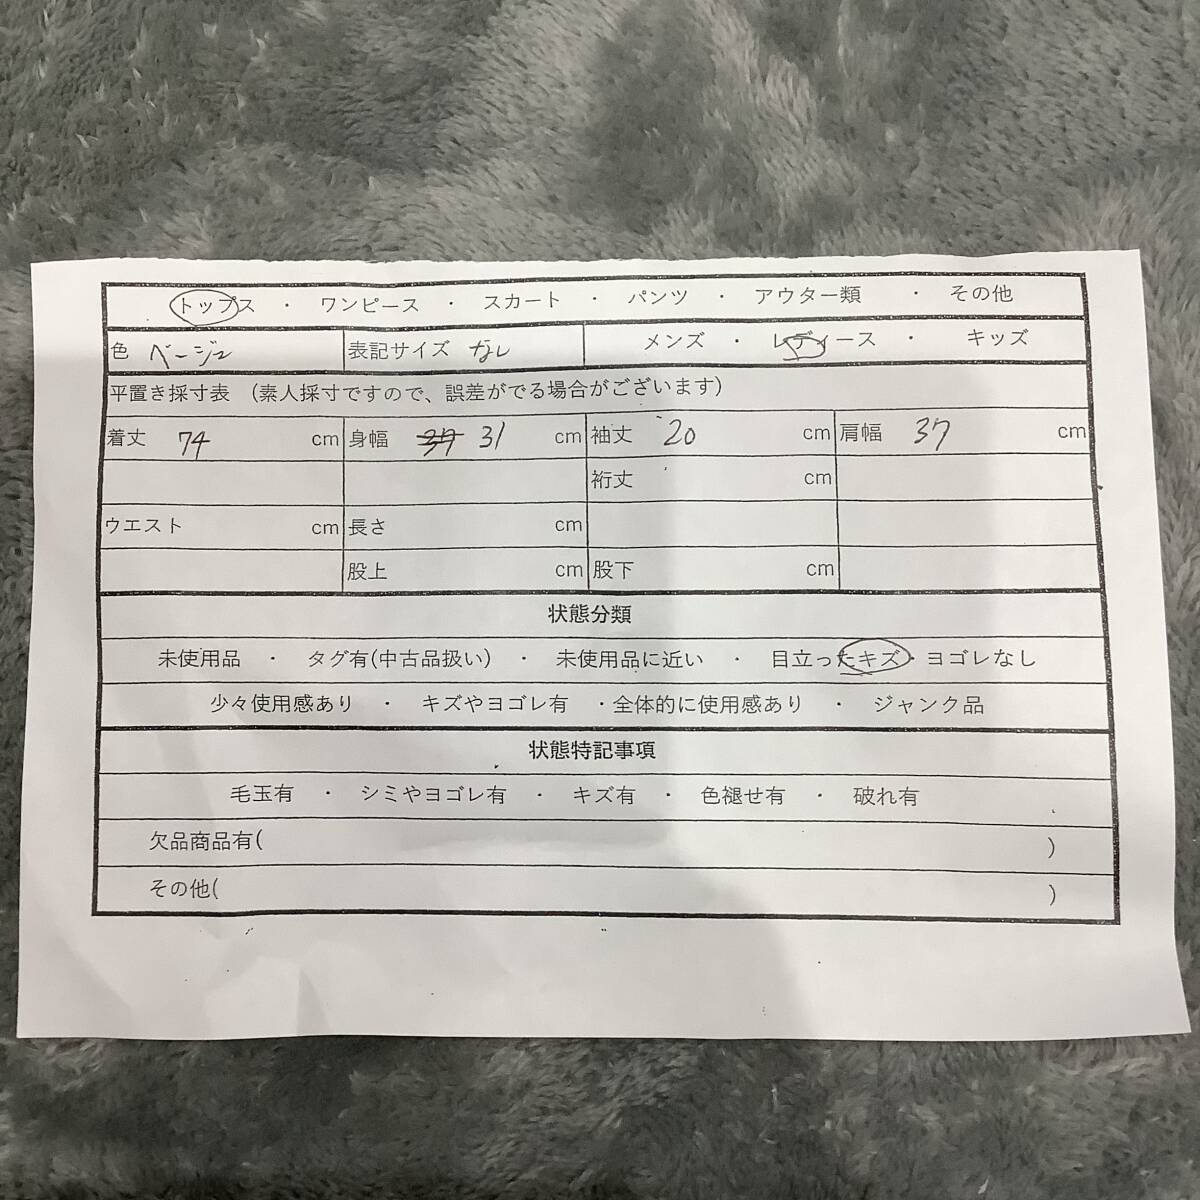 トップス ・ ワンピース ・ スカート ・ パンツ ・ アウター類 ・ その他
色 ベージュ 表記サイズ なし メンズ ・ レディース ・ キッズ
平置き採寸表 (素人採寸ですので、誤差がでる場合がございます)
着丈 74 cm 身幅 37 31 cm 袖丈 20 cm 肩幅 37 cm
裄丈 cm
ウエスト cm 長さ cm
股上 cm 股下 cm
状態分類
未使用品 ・ タグ有(中古品扱い) ・ 未使用品に近い ・ 目立ったキズ・ヨゴレなし
少々使用感あり ・ キズやヨゴレ有 ・全体的に使用感あり ・ ジャンク品
状態特記事項
毛玉有 ・ シミやヨゴレ有 ・ キズ有 ・ 色褪せ有 ・ 破れ有
欠品商品有( )
その他( )